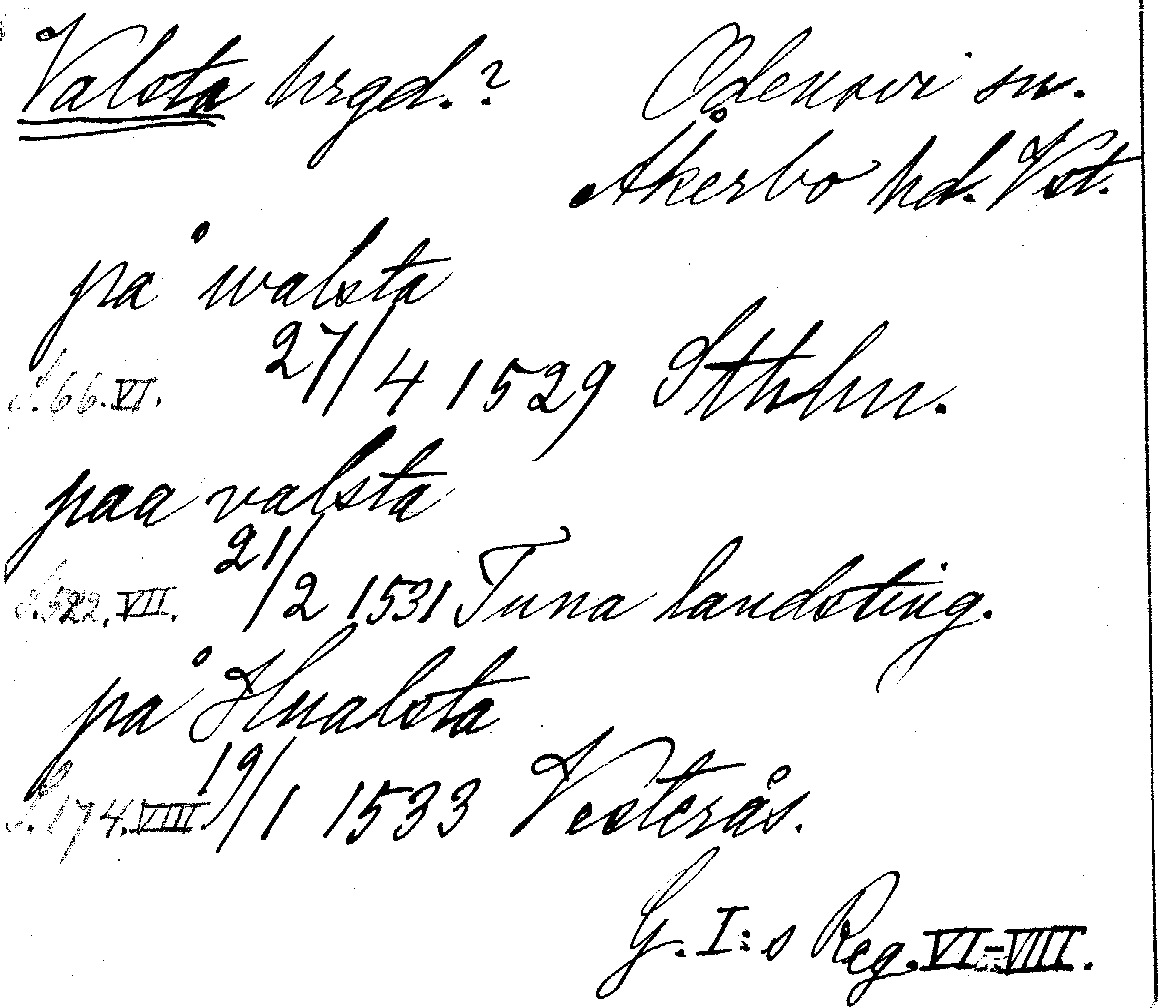 Valsta hrgd.? Odensvi sn.
Åkerbo hd. Vst.
på walsta
S. 66. VI. 27/4 1529 Sthlm.
paa valsta
S. 522. VII. 21/2 1531 Tuna landsting.
på Hualsta
S. 174. VIII 19/1 1533 Vesterås.
G. I:s Reg. VI-VIII.